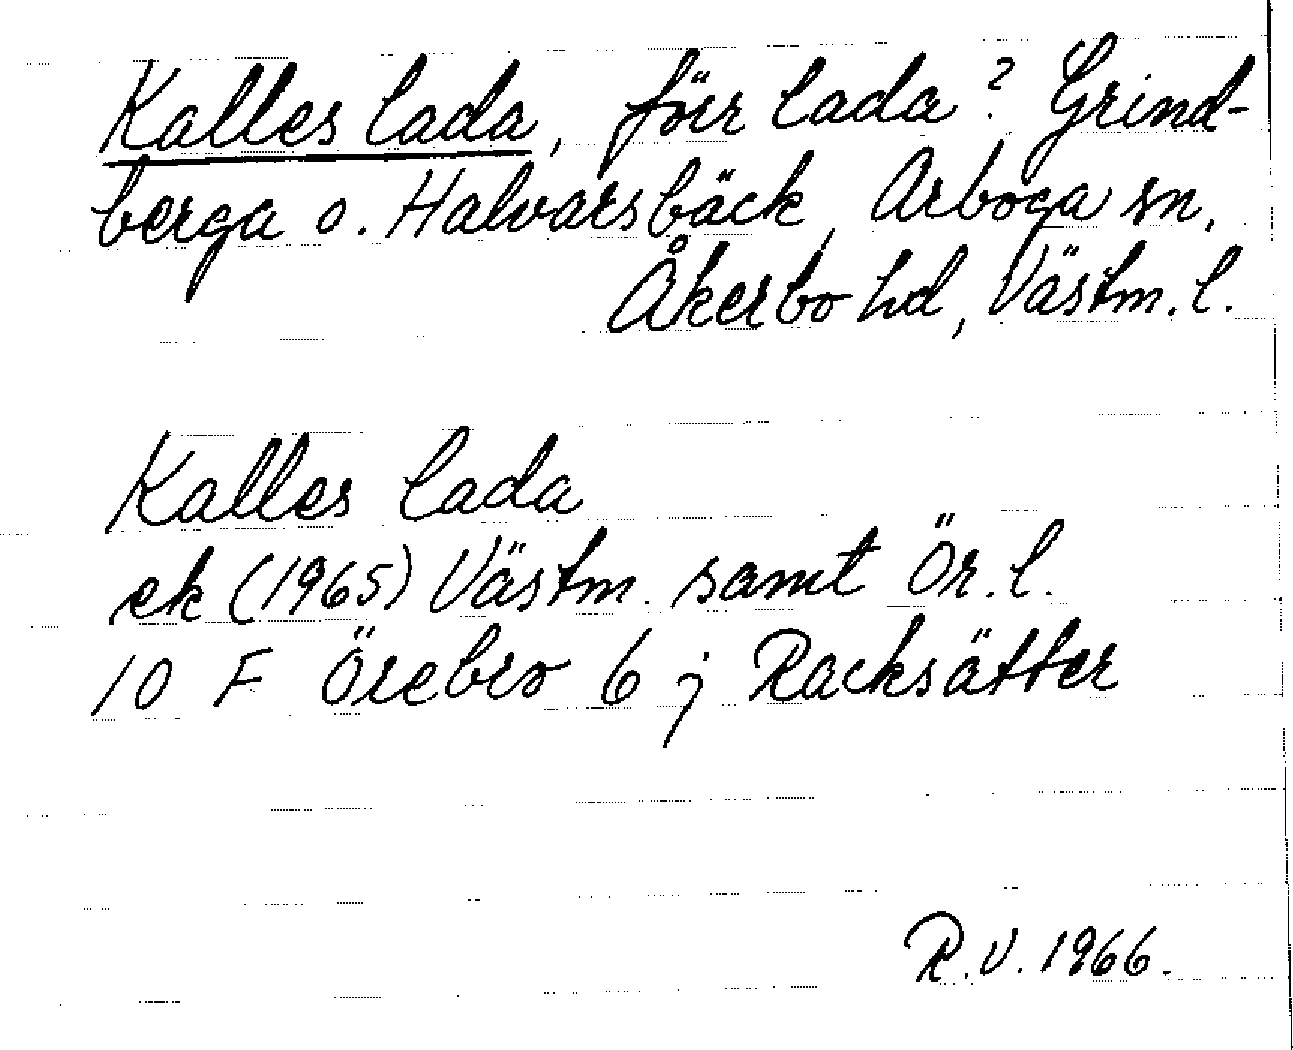 Kalles lada, för lada? Grind-
berga o. Halvarsbäck, Arboga sn,
Åkerbo hd, Västm. l.
Kalles lada
ek (1965) Västm. samt Ör. l.
10 F Örebro 6 j Racksätter
R.V. 1966.